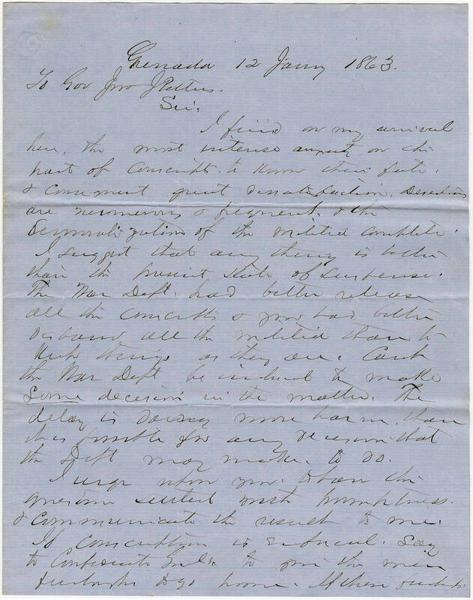 Grenada 12 Jany 1863.
To Gov Jno J Pettus.
Sir.
I find on my arrival
here, the most intense anxiety on the
part of conscripts to know their fate.
& consequent great dissatisfaction. Desertions
are numerous & frequent, & the
Demoralization of the militia complete.
I suggest that any thing is better
than the present state of suspense.
The War Dept. had better release
all the conscripts & you had better
disband all the militia than to
keep things as they are. Can't
the War Dept be induced to make
some decision in the matter. The
delay is doing more harm than
it is possible for any decision that
the Dept may make, to do.
I urge upon you to have this
question settled with promptness.
& communicate the result to me.
If conscription is enforced. Say
to Confederate Genls. to give the men
furloughs to go home. If these